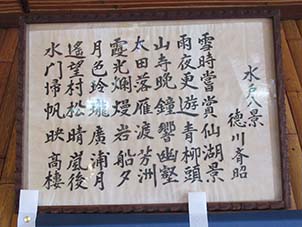 水戸八景
徳川斉昭
雪時嘗賞仙湖景
雨夜更遊青柳頭
山寺晩鐘響幽壑
太田落雁渡芳洲
霞光爛熳岩船夕
月色玲瓏廣浦月
遙望村松晴嵐後
水門帰帆映高樓